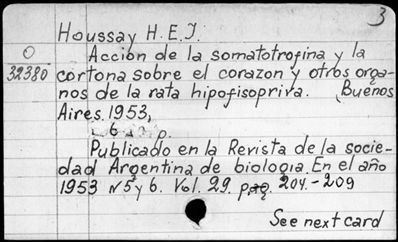 3
Houssay H. E. J.
O
32380
Acción de la somatotrofina y la
cortona sobre el corazon y otros orga-
nos de la rata hipofisopriva. Buenos
Aires. 1953,
6 p.
Publicado en la Revista de la socie-
dad Argentina de biologia. En el año
1953 N 5 y 6. Vol. 29. pag. 204.-209
See next card